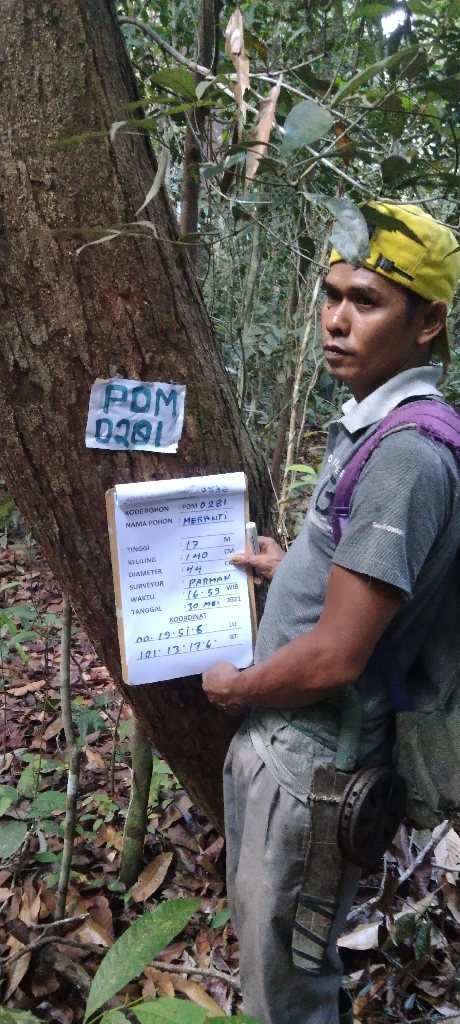 POM
0281
KODE POHON : POM 0281
NAMA POHON : MERANTI
TINGGI : 17 M
KELILING : 140 CM
DIAMETER : 44 CM
SURVEYOR : PARMAN
WAKTU : 16.59 WIB
TANGGAL : 30 MEI 2021
KOORDINAT
00.19.51.6 LU
101.13.17.6 BT